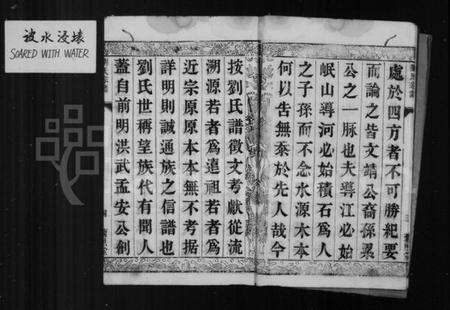 被水浸壊
SOAKED WITH WATER
處於四方者不可勝紀要
而論之皆文靖公裔孫累
公之一脉也夫導江必始
岷山導河必始積石爲人
之子孫而不念水源木本
何以告無忝於先人哉今
按劉氏譜徵文考獻從流
溯源若者爲遠祖若者爲
近宗原原本本無不考據
詳明則誠通族之信譜也
劉氏世稱望族代有聞人
蓋自前明洪武孟安公創